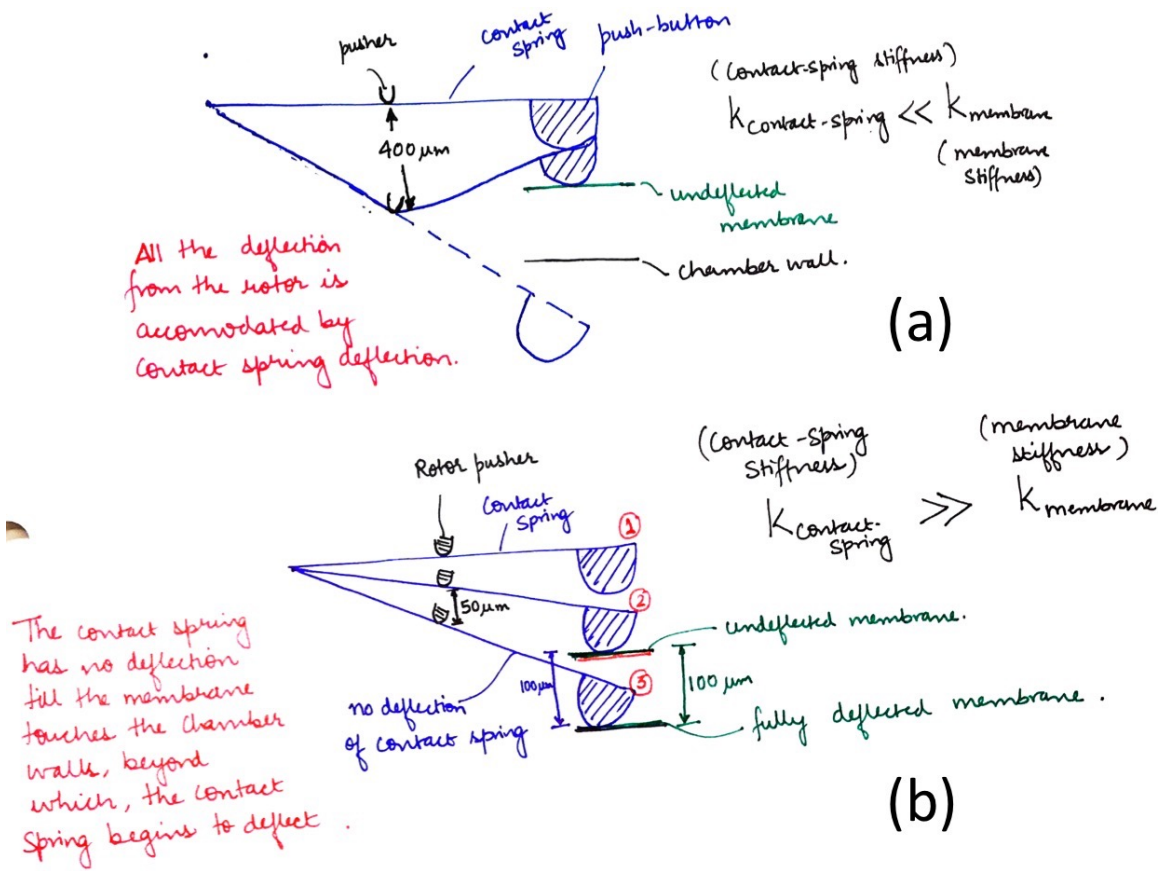 pusher
contact
spring
push-button
(contact-spring stiffness)
Kcontact-spring << Kmembrane
(membrane
stiffness)
400 μm
undeflected
membrane
chamber wall.
All the deflection
from the rotor is
accomodated by
contact spring deflection.
(a)
(contact-spring
stiffness)
(membrane
stiffness)
Kcontact-
spring
>>
Kmembrane
Rotor pusher
contact
spring
1
2
50μm
undeflected membrane.
100μm
3
100 μm
no deflection
of contact spring
fully deflected membrane.
The contact spring
has no deflection
till the membrane
touches the chamber
walls, beyond
which, the contact
spring begins to deflect.
(b)